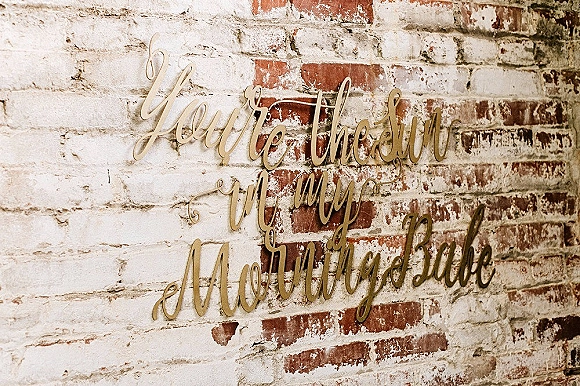 You're the Sun
in my
Morning Babe